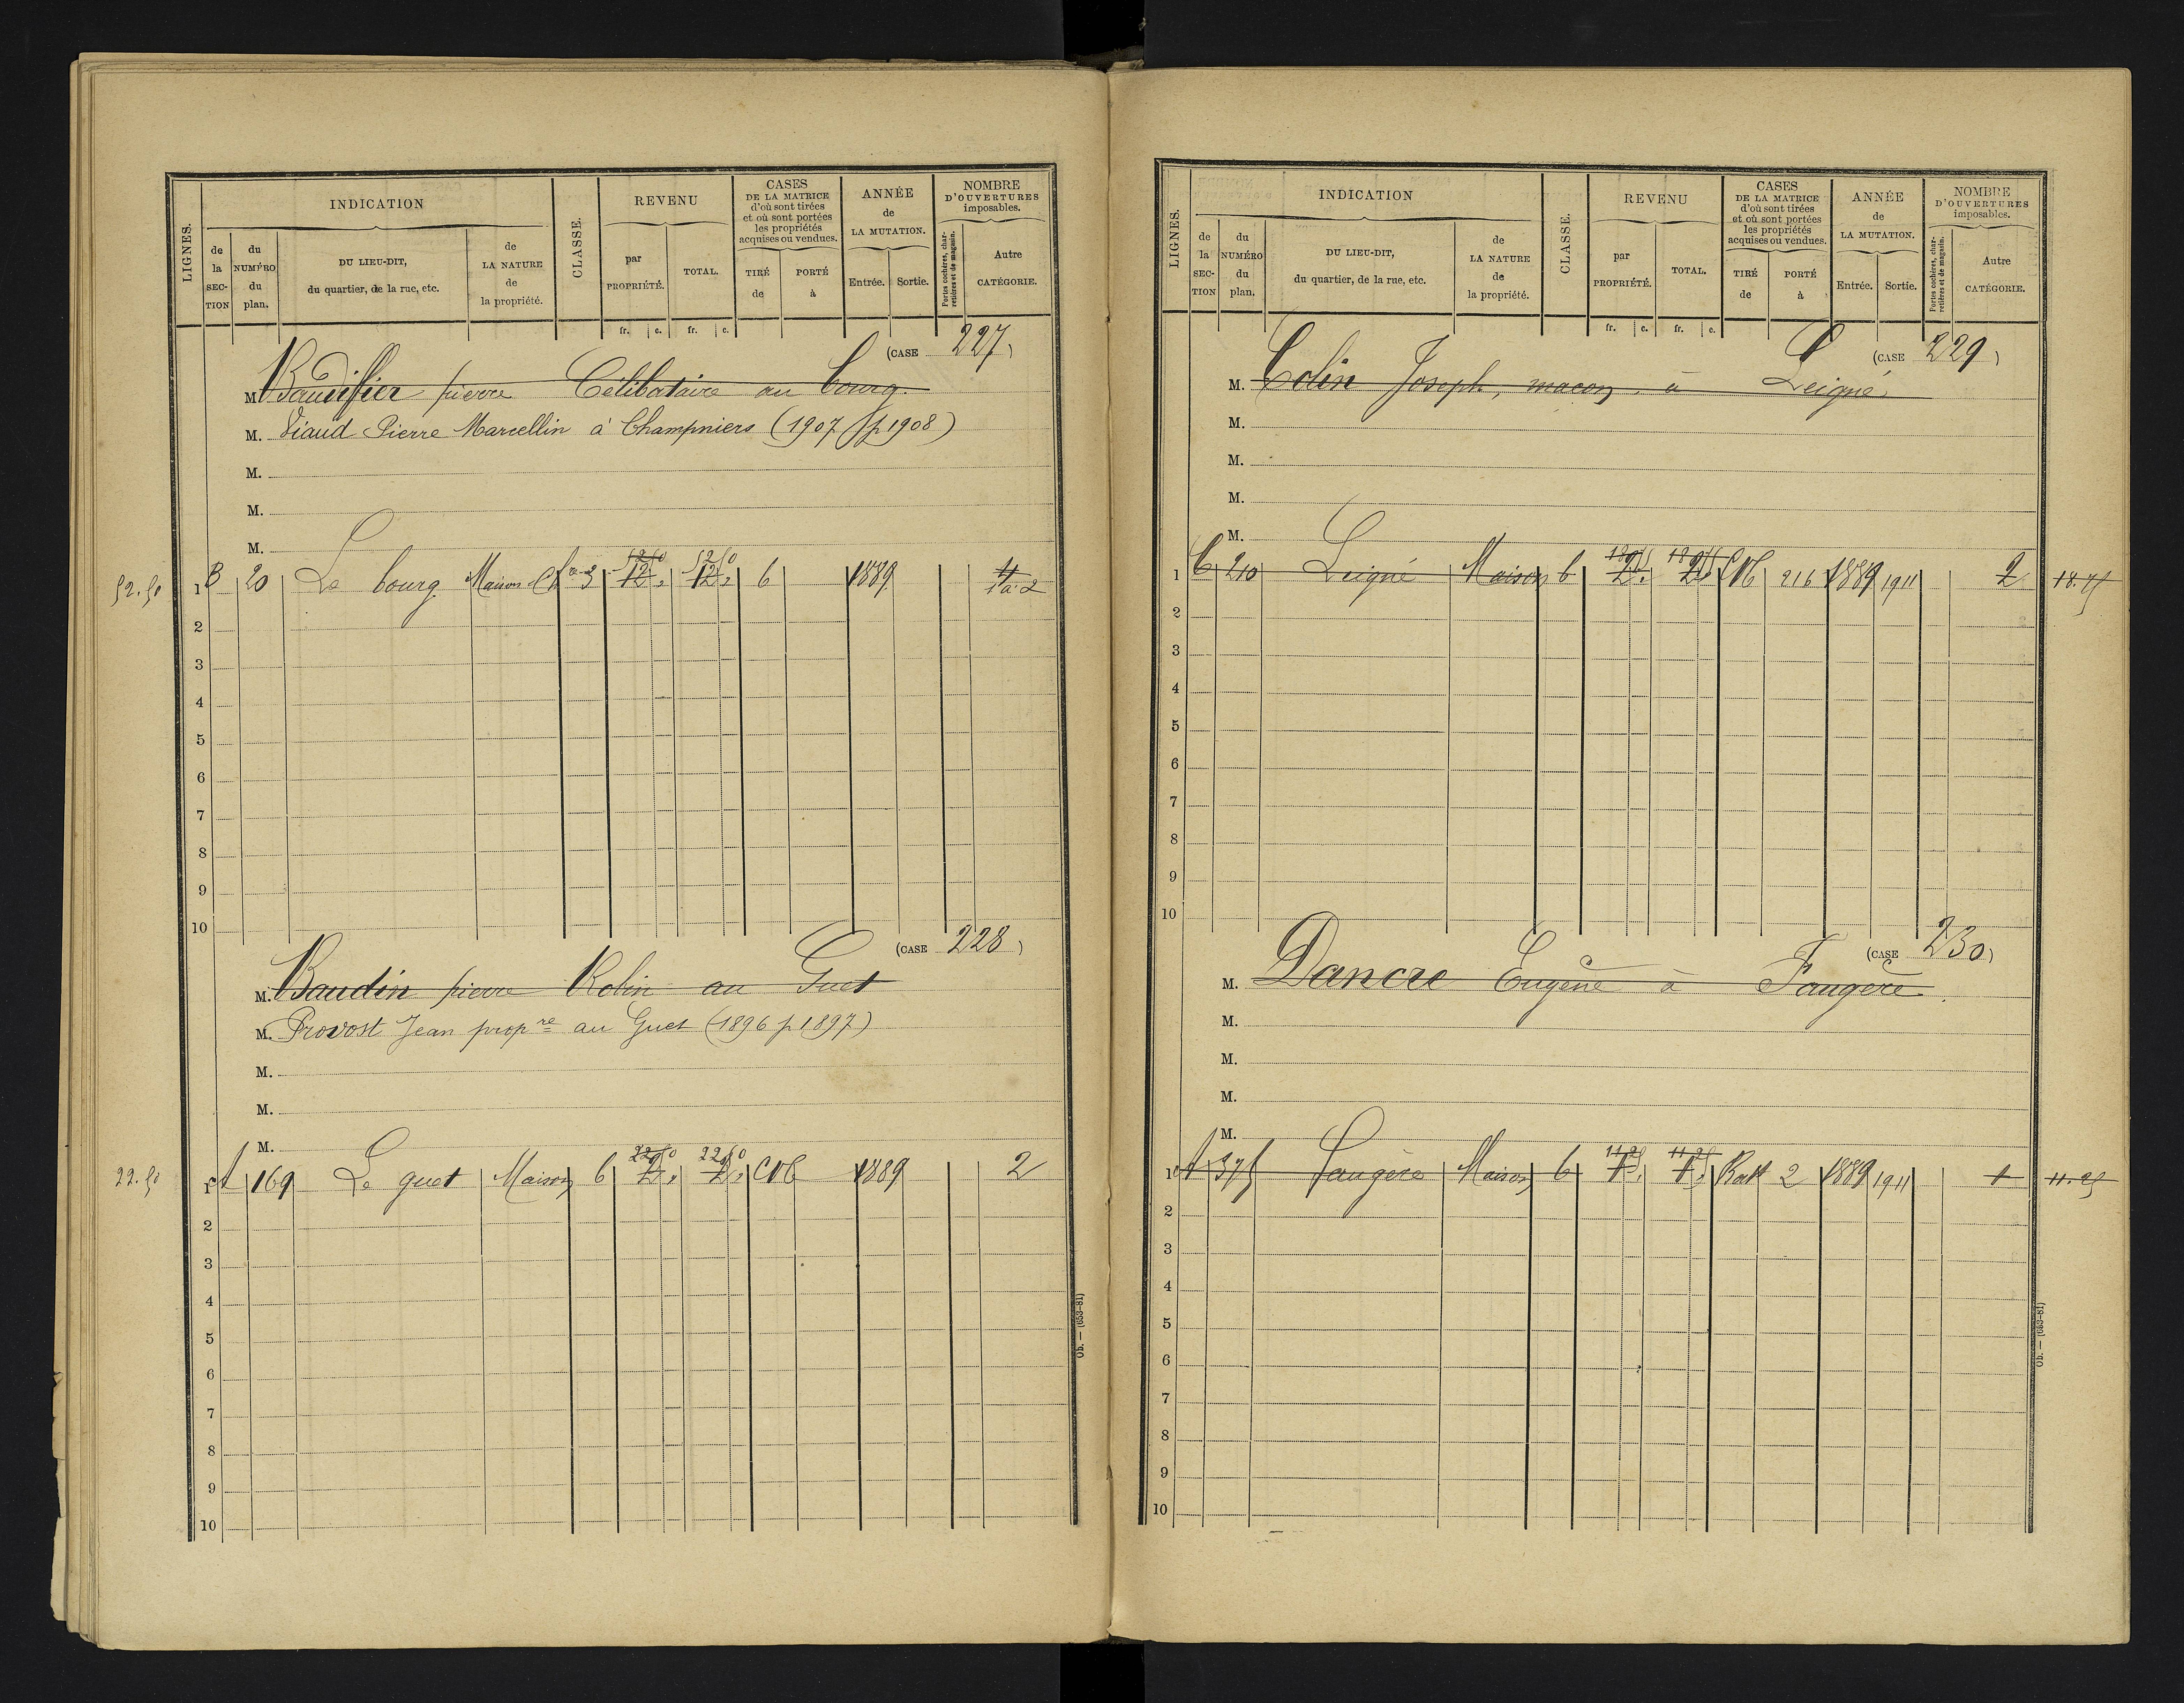 LIGNES.
INDICATION
de la SECTION
du NUMÉRO du plan.
DU LIEU-DIT, du quartier, de la rue, etc.
de LA NATURE de la propriété.
CLASSE.
REVENU
par PROPRIÉTÉ.
TOTAL.
fr. c. fr. c.
CASES DE LA MATRICE d'où sont tirées et où sont portées les propriétés acquises ou vendues.
TIRÉ de
PORTÉ à
ANNÉE de LA MUTATION.
Entrée. Sortie.
NOMBRE D'OUVERTURES imposables.
Portes cochères, charretières et de magasin.
Autre CATÉGORIE.
(CASE 227)
M. Baudiffier pierre Célibataire au bourg.
M. Viaud Pierre Marcellin à Champniers (1907 p 1908)
M.
M.
M.
52.50 1 B 20 Le bourg Maison 3 52.50 12 52.50 12 6 1889 1 à 2
2
3
4
5
6
7
8
9
10
(CASE 228)
M. Baudin pierre Robin au Guet
M. Provost Jean propre au Guet (1896 p 1897)
M.
M.
M.
22.50 1 A 169 Le guet Maison 6 22.50 2 22.50 2 CNC 1889 2
2
3
4
5
6
7
8
9
10
Ob. — (653-81)
LIGNES.
INDICATION
de la SECTION
du NUMÉRO du plan.
DU LIEU-DIT, du quartier, de la rue, etc.
de LA NATURE de la propriété.
CLASSE.
REVENU
par PROPRIÉTÉ.
TOTAL.
fr. c. fr. c.
CASES DE LA MATRICE d'où sont tirées et où sont portées les propriétés acquises ou vendues.
TIRÉ de
PORTÉ à
ANNÉE de LA MUTATION.
Entrée. Sortie.
NOMBRE D'OUVERTURES imposables.
Portes cochères, charretières et de magasin.
Autre CATÉGORIE.
(CASE 229)
M. Colin Joseph, maçon, à Leigné
M.
M.
M.
M.
1 C 210 Leigné Maison 6 18.75 2 18.75 2 CNC 216 1889 1911 2 18.75
2
3
4
5
6
7
8
9
10
(CASE 230)
M. Dancre Eugène à Faugère
M.
M.
M.
M.
1 A 375 Faugère Maison 6 11.25 1 11.25 1 2 1889 1911 1 11.25
2
3
4
5
6
7
8
9
10
Ob. — (653-81)